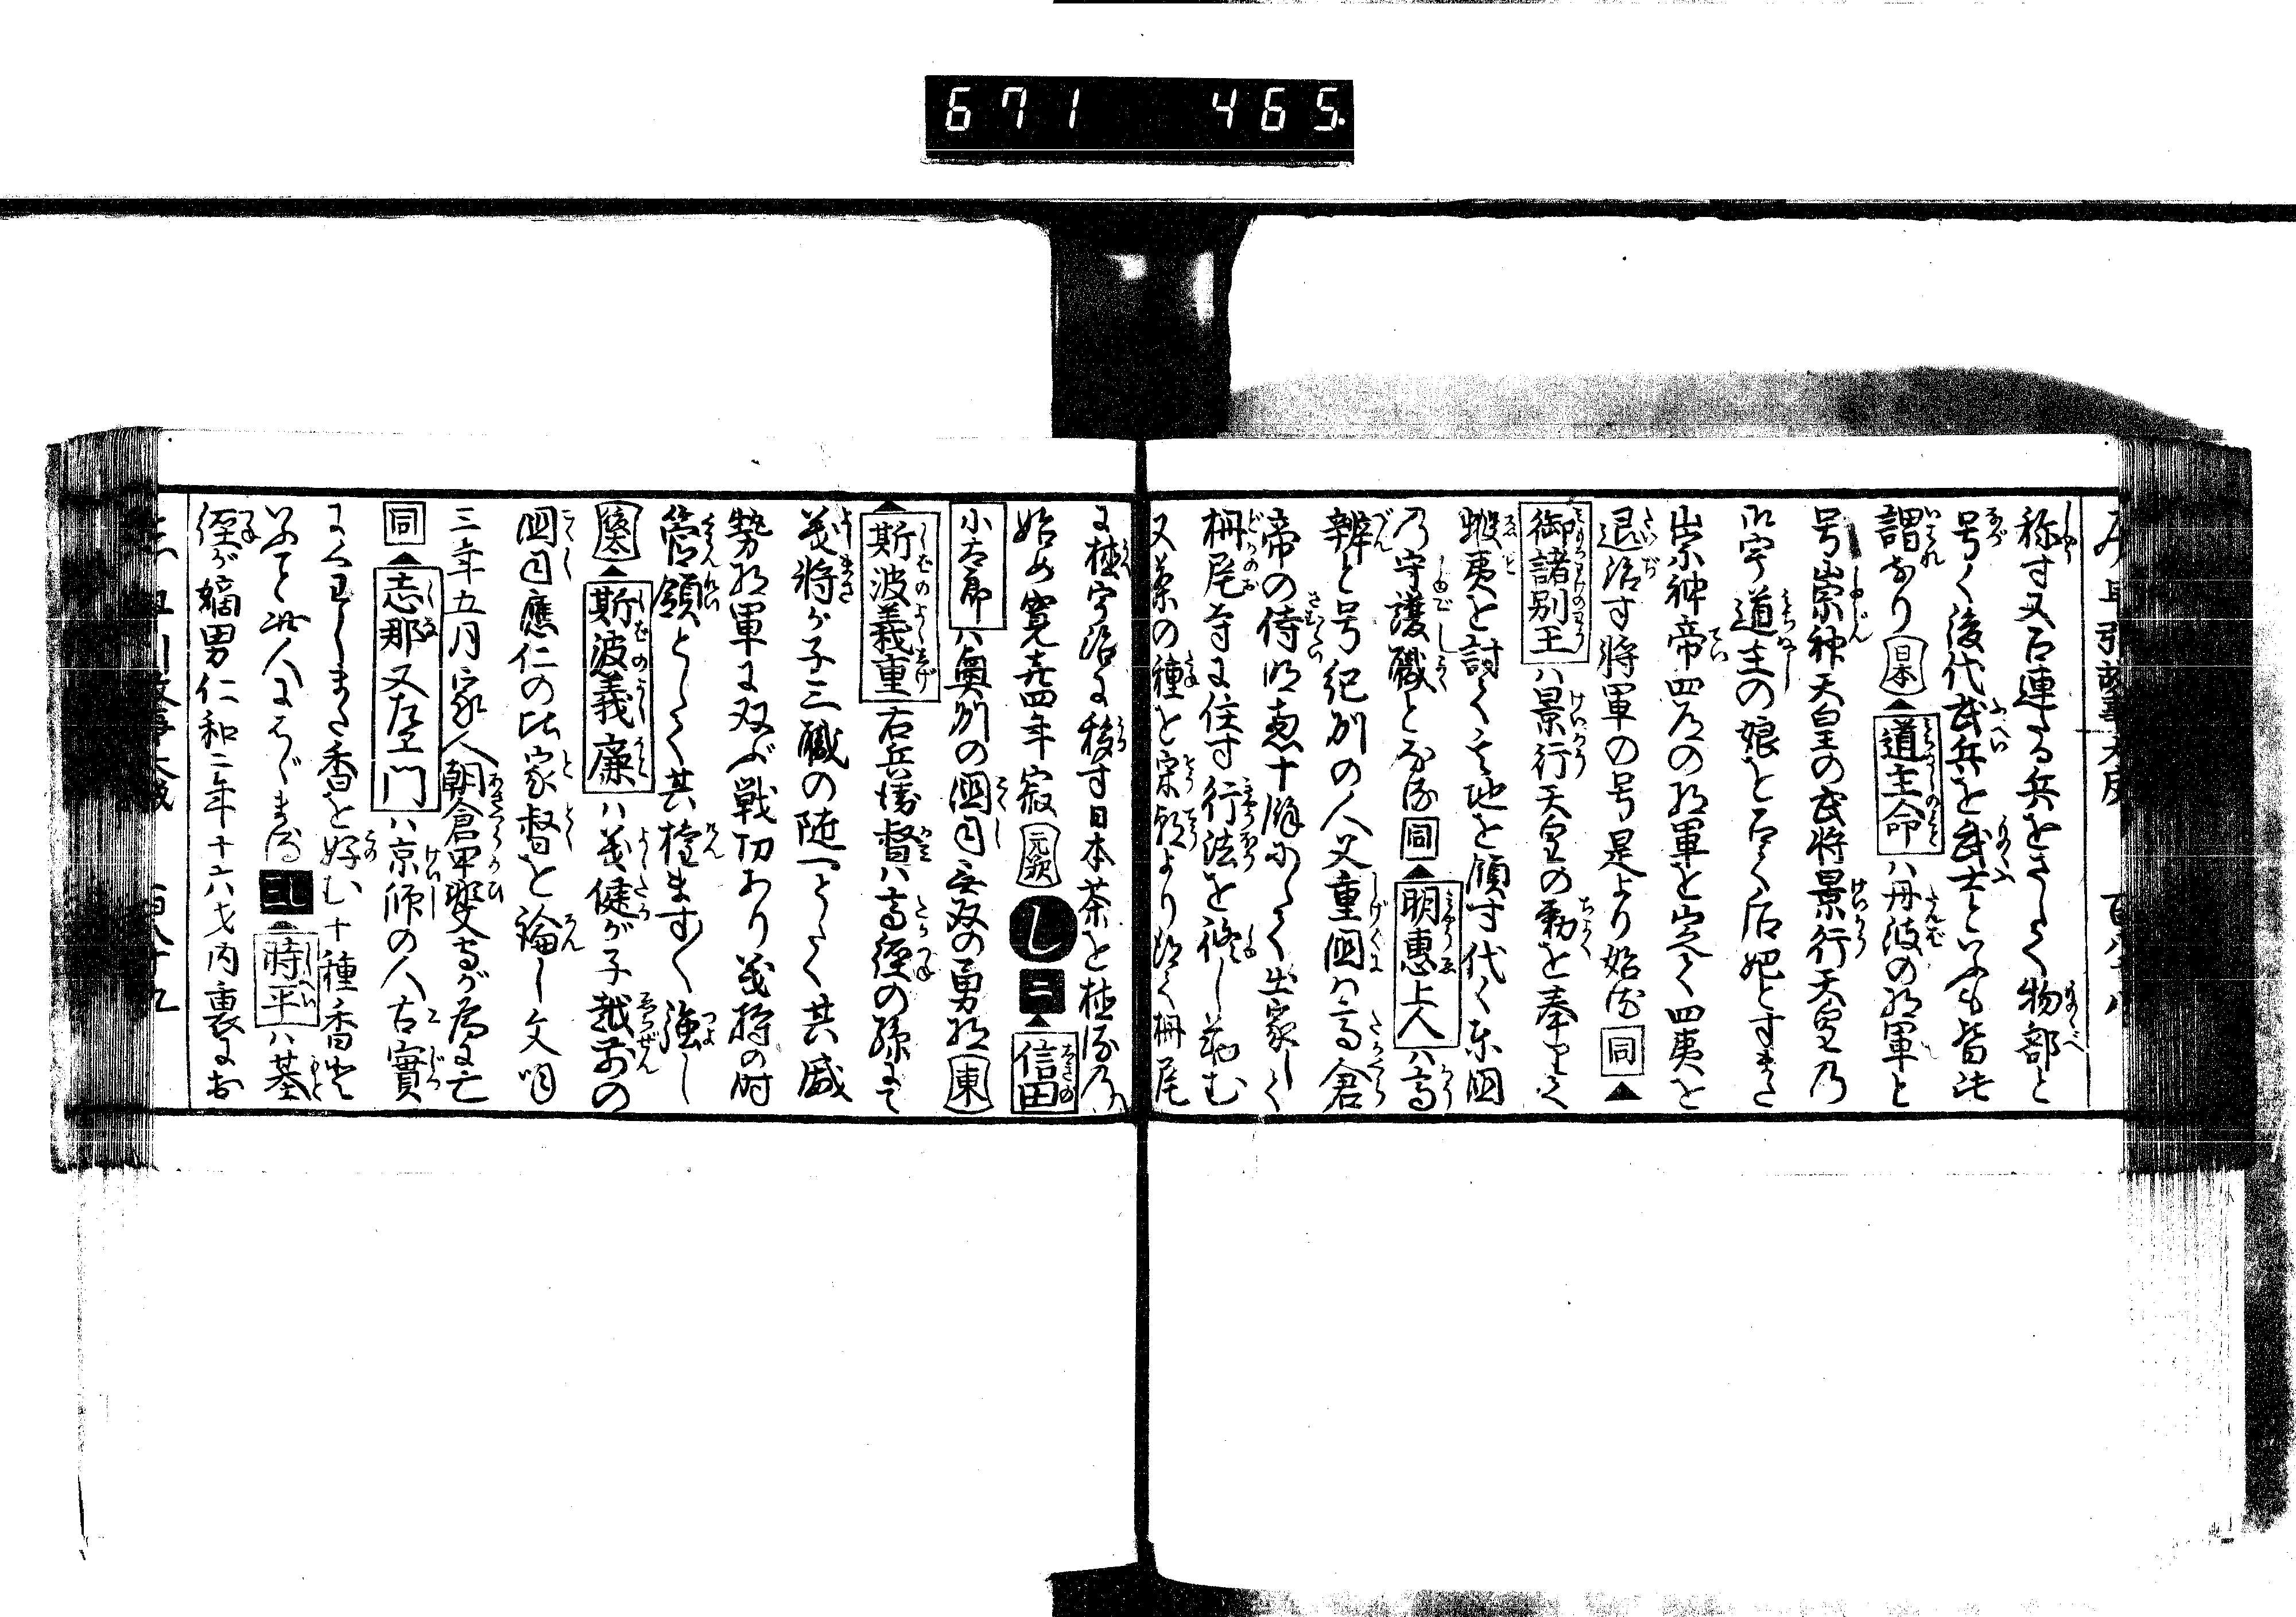 671 465.
称す又石連なる兵をさして物部と
号く後代武兵を武士といふも皆此
謂なり 日本 ▲道主命ハ丹波の将軍と
号崇神天皇の武将景行天皇乃
御宇道主の娘を召て后妃とすまた
崇神帝四道の将軍を定て四夷を
退治す将軍の号是より始る 同 ▲
御諸別王ハ景行天皇の勅を奉りて
蝦夷を討て其地を領す代々東国
乃守護職となる 同 ▲明惠上人ハ高
辨と号紀州の人父重国ハ高倉
帝の侍 十 出家して
栂尾寺に住す行法を修し
又茶の種を宋朝より 栂尾
に植宇治に移す日本茶を植る乃
始め寛喜四年寂 元亨 し 二 ▲信田
小太郎ハ奥州の国司無双の勇将 東
▲斯波義重右兵衛督ハ高經の孫にて
義将が子三職の随一として其威
勢将軍に双ぶ戦切あり義持の時
管領として其権ます〱強し
後太 ▲斯波義廉ハ義健が子越前の
国司應仁の比家督を論し文明
三年五月家人朝倉 が為に亡
同 ▲志那又左エ門ハ京師の人古實
にくわしまた香を好む十種香
此人にはじまる 二し ▲時平ハ基
經が嫡男仁和二年十六才内裏にお